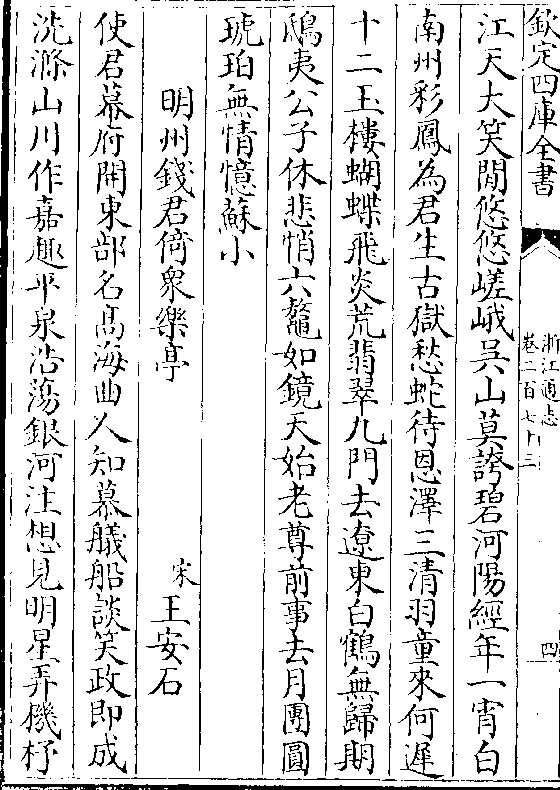 欽定四庫全書
浙江通志
卷二百七十二
四
江天大笑閒悠悠嵯峨吳山莫誇碧河陽經年一宵白
南州彩鳳為君生古獄愁蛇待恩澤三清羽童來何遲
十二玉樓蝴蝶飛炎荒翡翠九門去遼東白鶴無歸期
鴟夷公子休悲悄六鼇如鏡天始老尊前事去月團圓
琥珀無情憶蘇小
明州錢君倚衆樂亭
宋王安石
使君幕府開東部名高海曲人知慕艤船談笑政即成
洗滌山川作嘉趣平泉浩蕩銀河注想見明星弄機杼